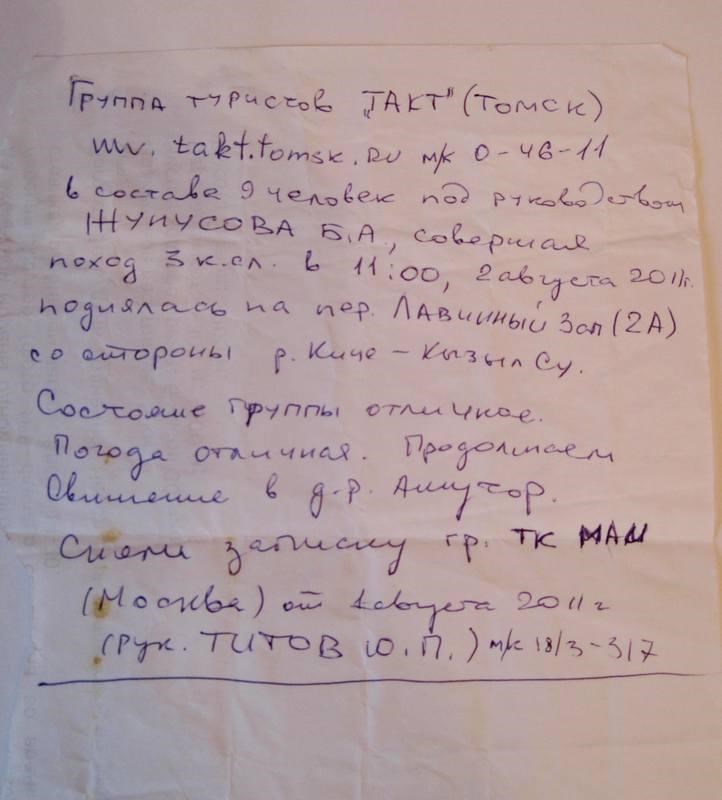 Группа туристов „ТАКТ" (Томск)
takt.tomsk.ru м/к 0-46-11
в составе 9 человек под руководством
ЖУПУСОВА Б.А., совершая
поход 3 к.сл. в 11:00, 2 августа 2011г.
поднялась на пер. ЛАВИННЫЙ Зап (2А)
со стороны р. Киче-Кызыл Су.
Состояние группы отличное.
Погода отличная. Продолжаем
движение в д-р. Ашутор.
Сняли записку гр. ТК МАИ
(Москва) от 1 августа 2011 г
(Рук. ТИТОВ Ю.П.) м/к 18/3-317